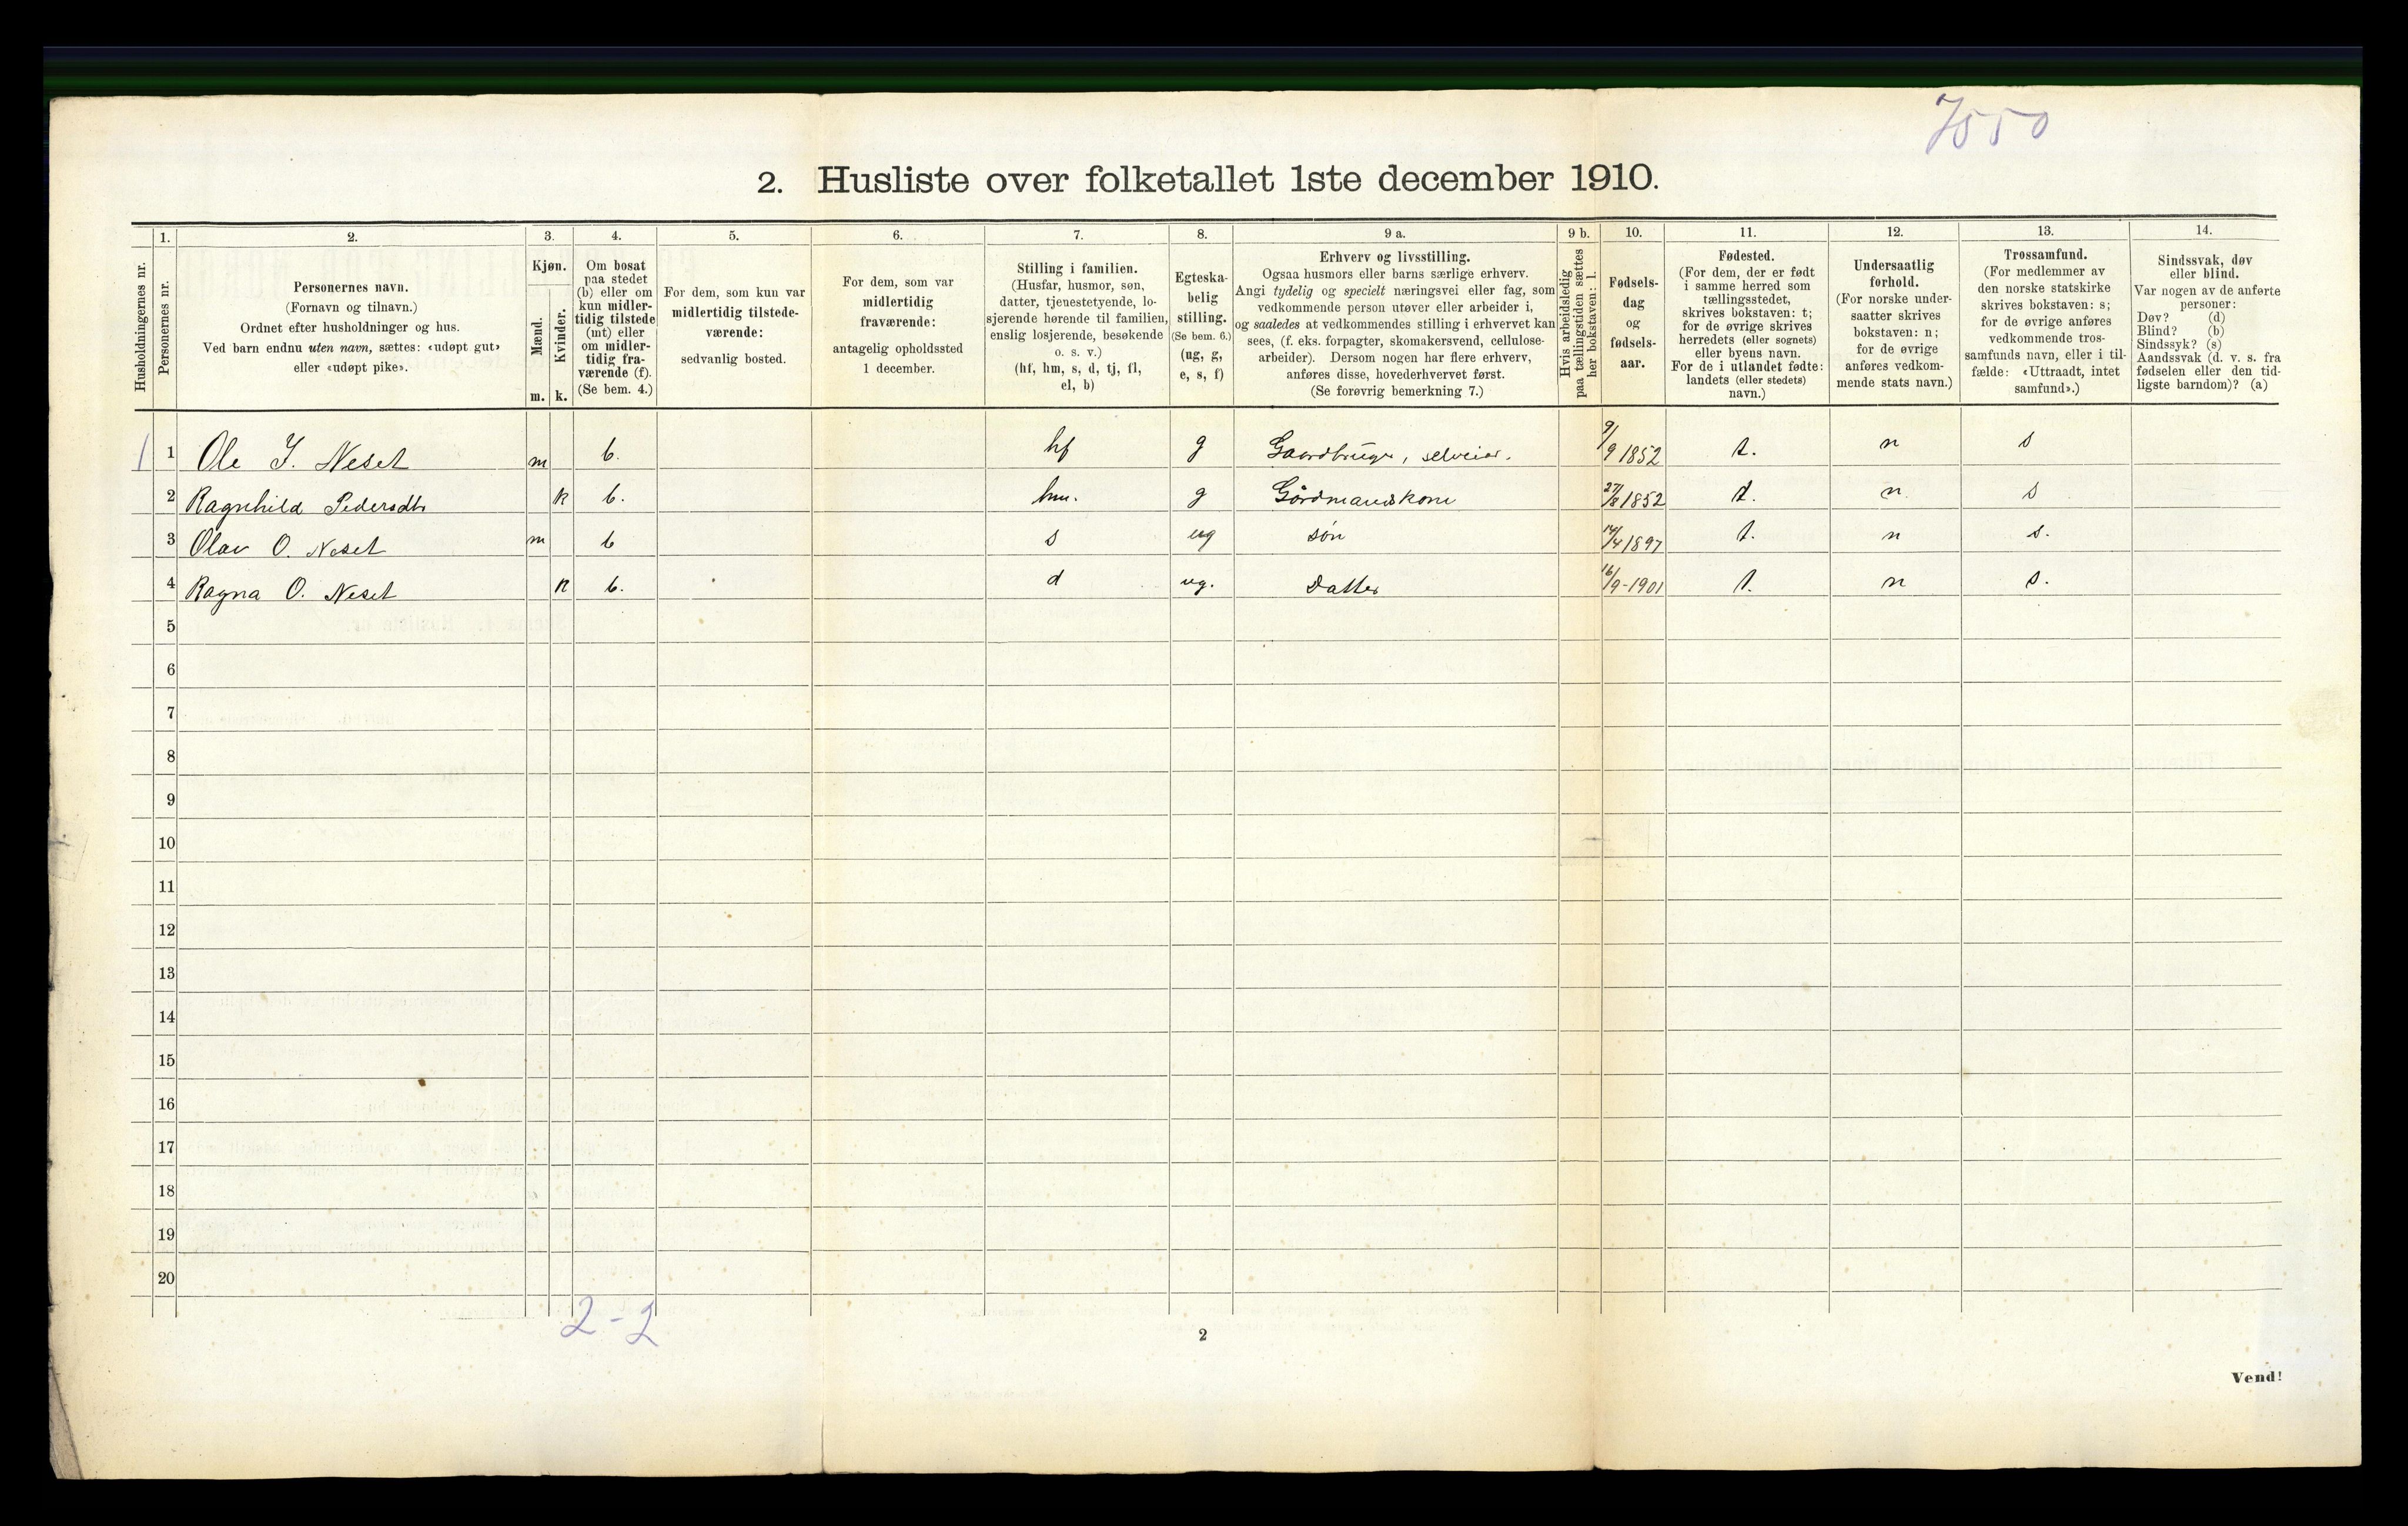 7550
2. Husliste over folketallet 1ste december 1910.
Husholdningernes nr.
1.
Personernes nr.
2.
Personernes navn.
(Fornavn og tilnavn.)
Ordnet efter husholdninger og hus.
Ved barn endnu uten navn, sættes: «udøpt gut»
eller «udøpt pike».
3.
Kjøn.
Mænd.
Kvinder.
m. k.
4.
Om bosat
paa stedet
(b) eller om
kun midler-
tidig tilstede
(mt) eller
om midler-
tidig fra-
værende (f).
(Se bem. 4.)
5.
For dem, som kun var
midlertidig tilstede-
værende:
sedvanlig bosted.
6.
For dem, som var
midlertidig
fraværende:
antagelig opholdssted
1 december.
7.
Stilling i familien.
(Husfar, husmor, søn,
datter, tjenestetyende, lo-
sjerende hørende til familien,
enslig losjerende, besøkende
o. s. v.)
(hf, hm, s, d, tj, fl,
el, b)
8.
Egteska-
belig
stilling.
(Se bem. 6.)
(ug, g,
e, s, f)
9 a.
Erhverv og livsstilling.
Ogsaa husmors eller barns særlige erhverv.
Angi tydelig og specielt næringsvei eller fag, som
vedkommende person utøver eller arbeider i,
og saaledes at vedkommendes stilling i erhvervet kan
sees, (f. eks. forpagter, skomakersvend, cellulose-
arbeider). Dersom nogen har flere erhverv,
anføres disse, hovederhvervet først.
(Se forøvrig bemerkning 7.)
9 b.
Hvis arbeidsledig
paa tællingstiden sættes
her bokstaven: l.
10.
Fødsels-
dag
og
fødsels-
aar.
11.
Fødested.
(For dem, der er født
i samme herred som
tællingsstedet,
skrives bokstaven: t;
for de øvrige skrives
herredets (eller sognets)
eller byens navn.
For de i utlandet fødte:
landets (eller stedets)
navn.)
12.
Undersaatlig
forhold.
(For norske under-
saatter skrives
bokstaven: n;
for de øvrige
anføres vedkom-
mende stats navn.)
13.
Trossamfund.
(For medlemmer av
den norske statskirke
skrives bokstaven: s;
for de øvrige anføres
vedkommende tros-
samfunds navn, eller i til-
fælde: «Uttraadt, intet
samfund».)
14.
Sindssvak, døv
eller blind.
Var nogen av de anførte
personer:
Døv? (d)
Blind? (b)
Sindssyk? (s)
Aandssvak (d. v. s. fra
fødselen eller den tid-
ligste barndom)? (a)
1 1 Ole I. Neset m b. hf g Gaardbruger, selveier. 9/9 1852 t. n s
2 Ragnhild Pedersdtr k b. hm. g Gårdmandskone 27/8 1852 t. n s
3 Olav O. Neset m b s ug søn 14/4 1897 t. n s.
4 Ragna O. Neset k b. d ug. Datter 16/9-1901 t. n s.
5
6
7
8
9
10
11
12
13
14
15
16
17
18
19
20
2-2
2
Vend!